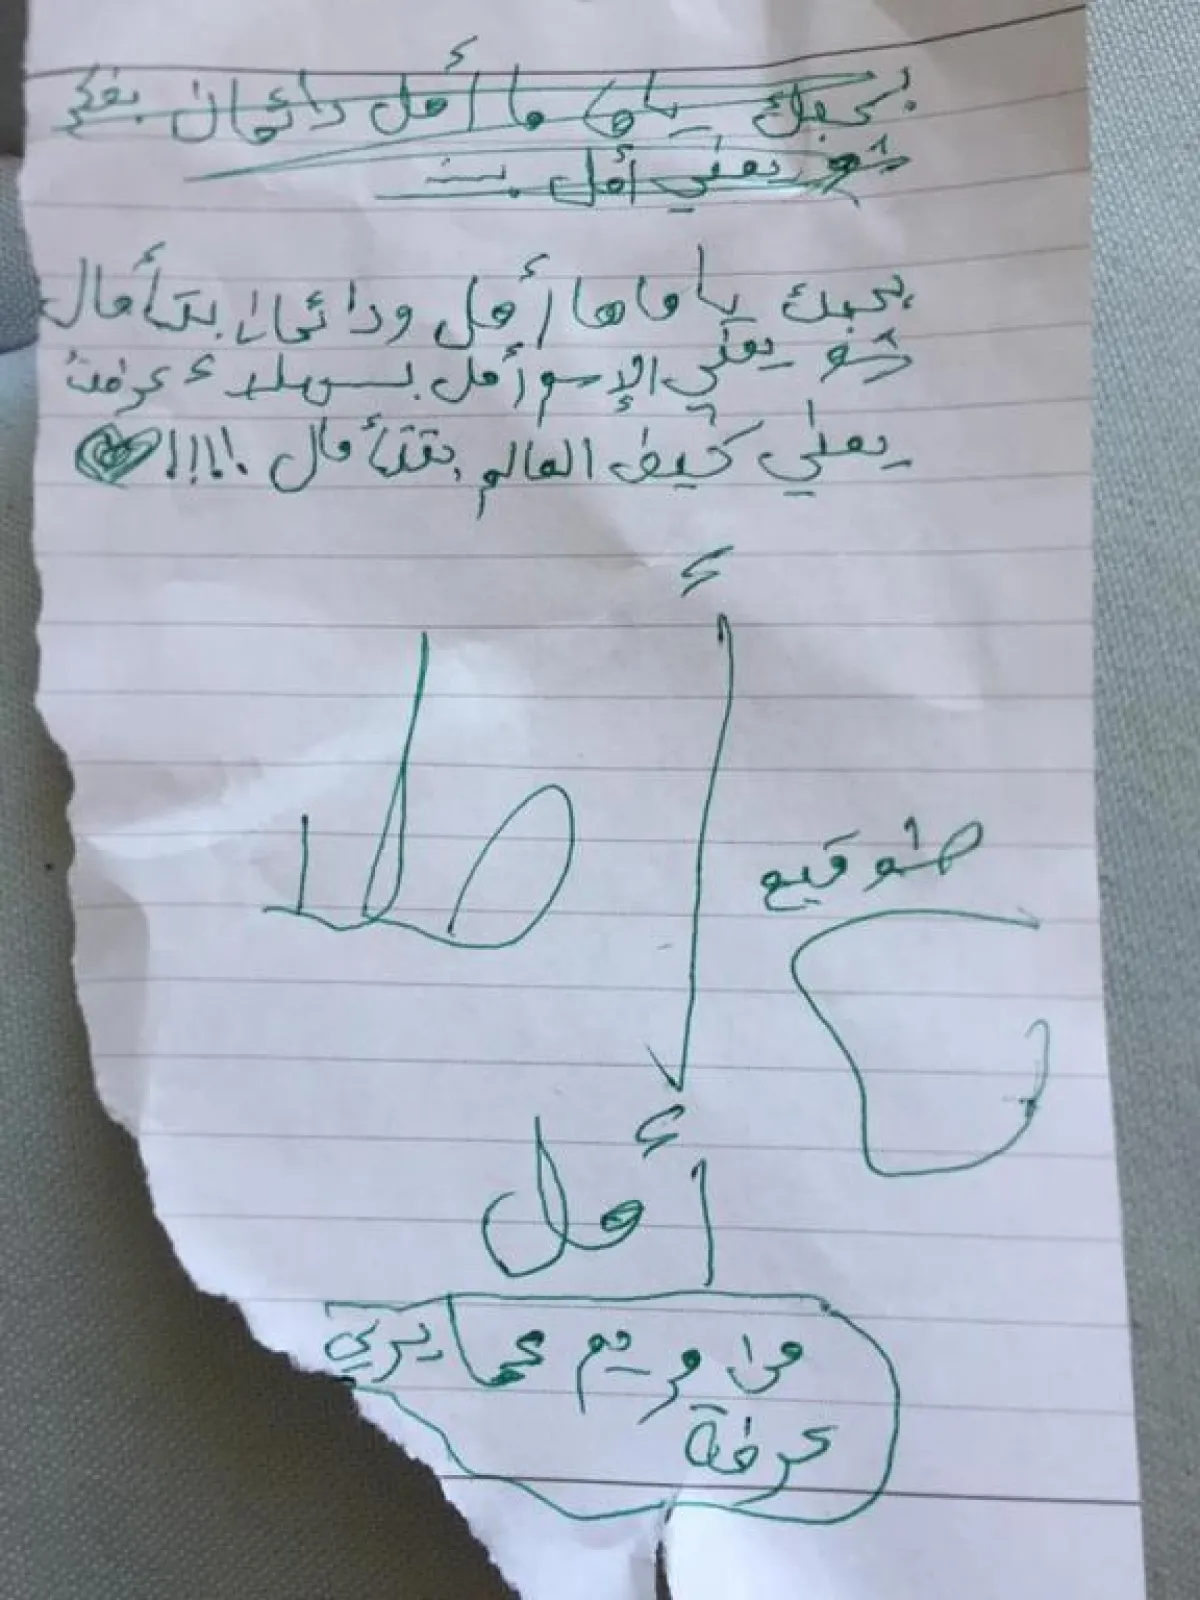 بحبك ياماما أمل دائمان بفكر
شو يعني أمل بت
بحبك ياماما أمل ودائمان بتأمال
شو يعني الإسم أمل بس هلاء عرفت
يعني كيف العالم بتتأمال .!!!!
أ
طوقيع
أمل
من مريم محايري
عرفة